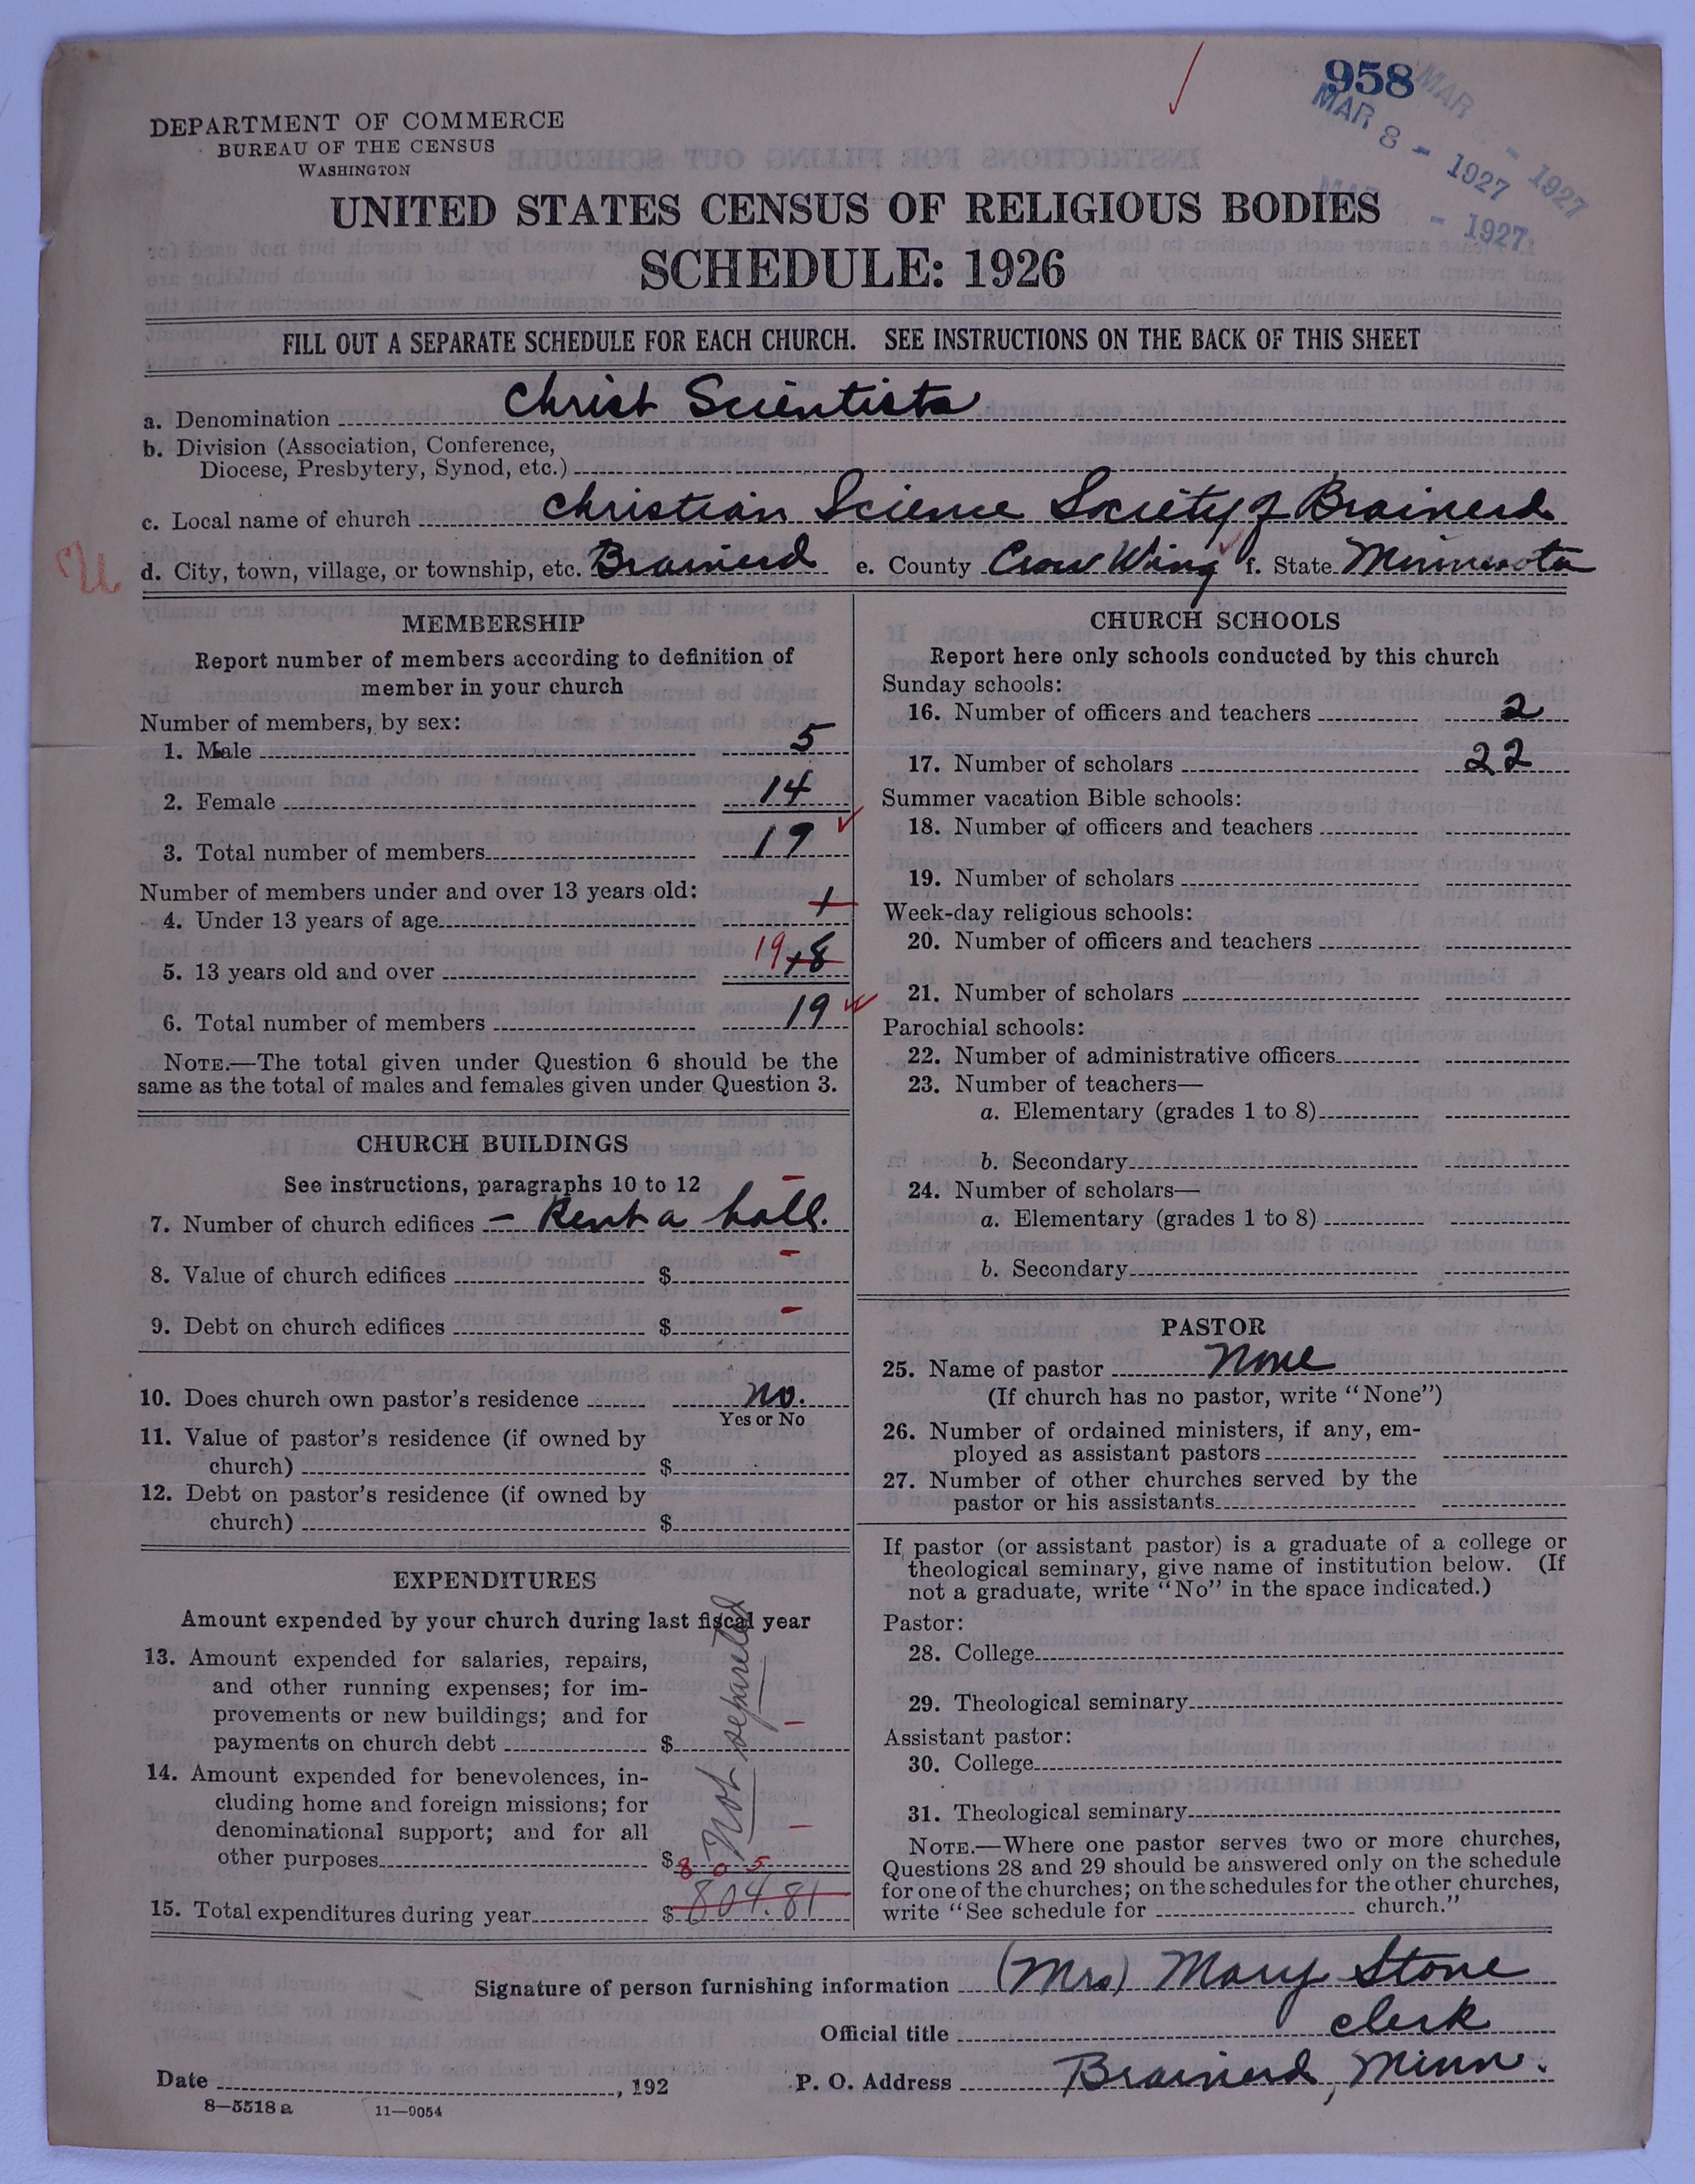 958
MAR 8 - 1927
MAR - 1927
- 1927
DEPARTMENT OF COMMERCE
BUREAU OF THE CENSUS
WASHINGTON
UNITED STATES CENSUS OF RELIGIOUS BODIES
SCHEDULE: 1926
FILL OUT A SEPARATE SCHEDULE FOR EACH CHURCH. SEE INSTRUCTIONS ON THE BACK OF THIS SHEET
a. Denomination Christ Scientists
b. Division (Association, Conference,
Diocese, Presbytery, Synod, etc.)
c. Local name of church Christian Science Society of Brainerd
d. City, town, village, or township, etc. Brainerd e. County Crow Wing f. State Minnesota
MEMBERSHIP
Report number of members according to definition of
member in your church
Number of members, by sex:
1. Male 5
2. Female 14
3. Total number of members 19
Number of members under and over 13 years old:
4. Under 13 years of age 1
5. 13 years old and over 19 18
6. Total number of members 19
NOTE.—The total given under Question 6 should be the
same as the total of males and females given under Question 3.
CHURCH BUILDINGS
See instructions, paragraphs 10 to 12
7. Number of church edifices – Rent a hall.
8. Value of church edifices $ –
9. Debt on church edifices $ –
10. Does church own pastor's residence no.
Yes or No
11. Value of pastor's residence (if owned by
church) $
12. Debt on pastor's residence (if owned by
church) $
EXPENDITURES
Amount expended by your church during last fiscal year
13. Amount expended for salaries, repairs,
and other running expenses; for im-
provements or new buildings; and for
payments on church debt $ –
14. Amount expended for benevolences, in-
cluding home and foreign missions; for
denominational support; and for all
other purposes $ –
Not separated
805
15. Total expenditures during year $ 804.81
CHURCH SCHOOLS
Report here only schools conducted by this church
Sunday schools:
16. Number of officers and teachers 2
17. Number of scholars 22
Summer vacation Bible schools:
18. Number of officers and teachers
19. Number of scholars
Week-day religious schools:
20. Number of officers and teachers
21. Number of scholars
Parochial schools:
22. Number of administrative officers
23. Number of teachers—
a. Elementary (grades 1 to 8)
b. Secondary
24. Number of scholars—
a. Elementary (grades 1 to 8)
b. Secondary
PASTOR
25. Name of pastor None
(If church has no pastor, write "None")
26. Number of ordained ministers, if any, em-
ployed as assistant pastors
27. Number of other churches served by the
pastor or his assistants
If pastor (or assistant pastor) is a graduate of a college or
theological seminary, give name of institution below. (If
not a graduate, write "No" in the space indicated.)
Pastor:
28. College
29. Theological seminary
Assistant pastor:
30. College
31. Theological seminary
NOTE.—Where one pastor serves two or more churches,
Questions 28 and 29 should be answered only on the schedule
for one of the churches; on the schedules for the other churches,
write "See schedule for church."
Signature of person furnishing information (Mrs) Mary Stone
Official title clerk
Date , 192 P. O. Address Brainerd, Minn.
8—5518 a 11—9054